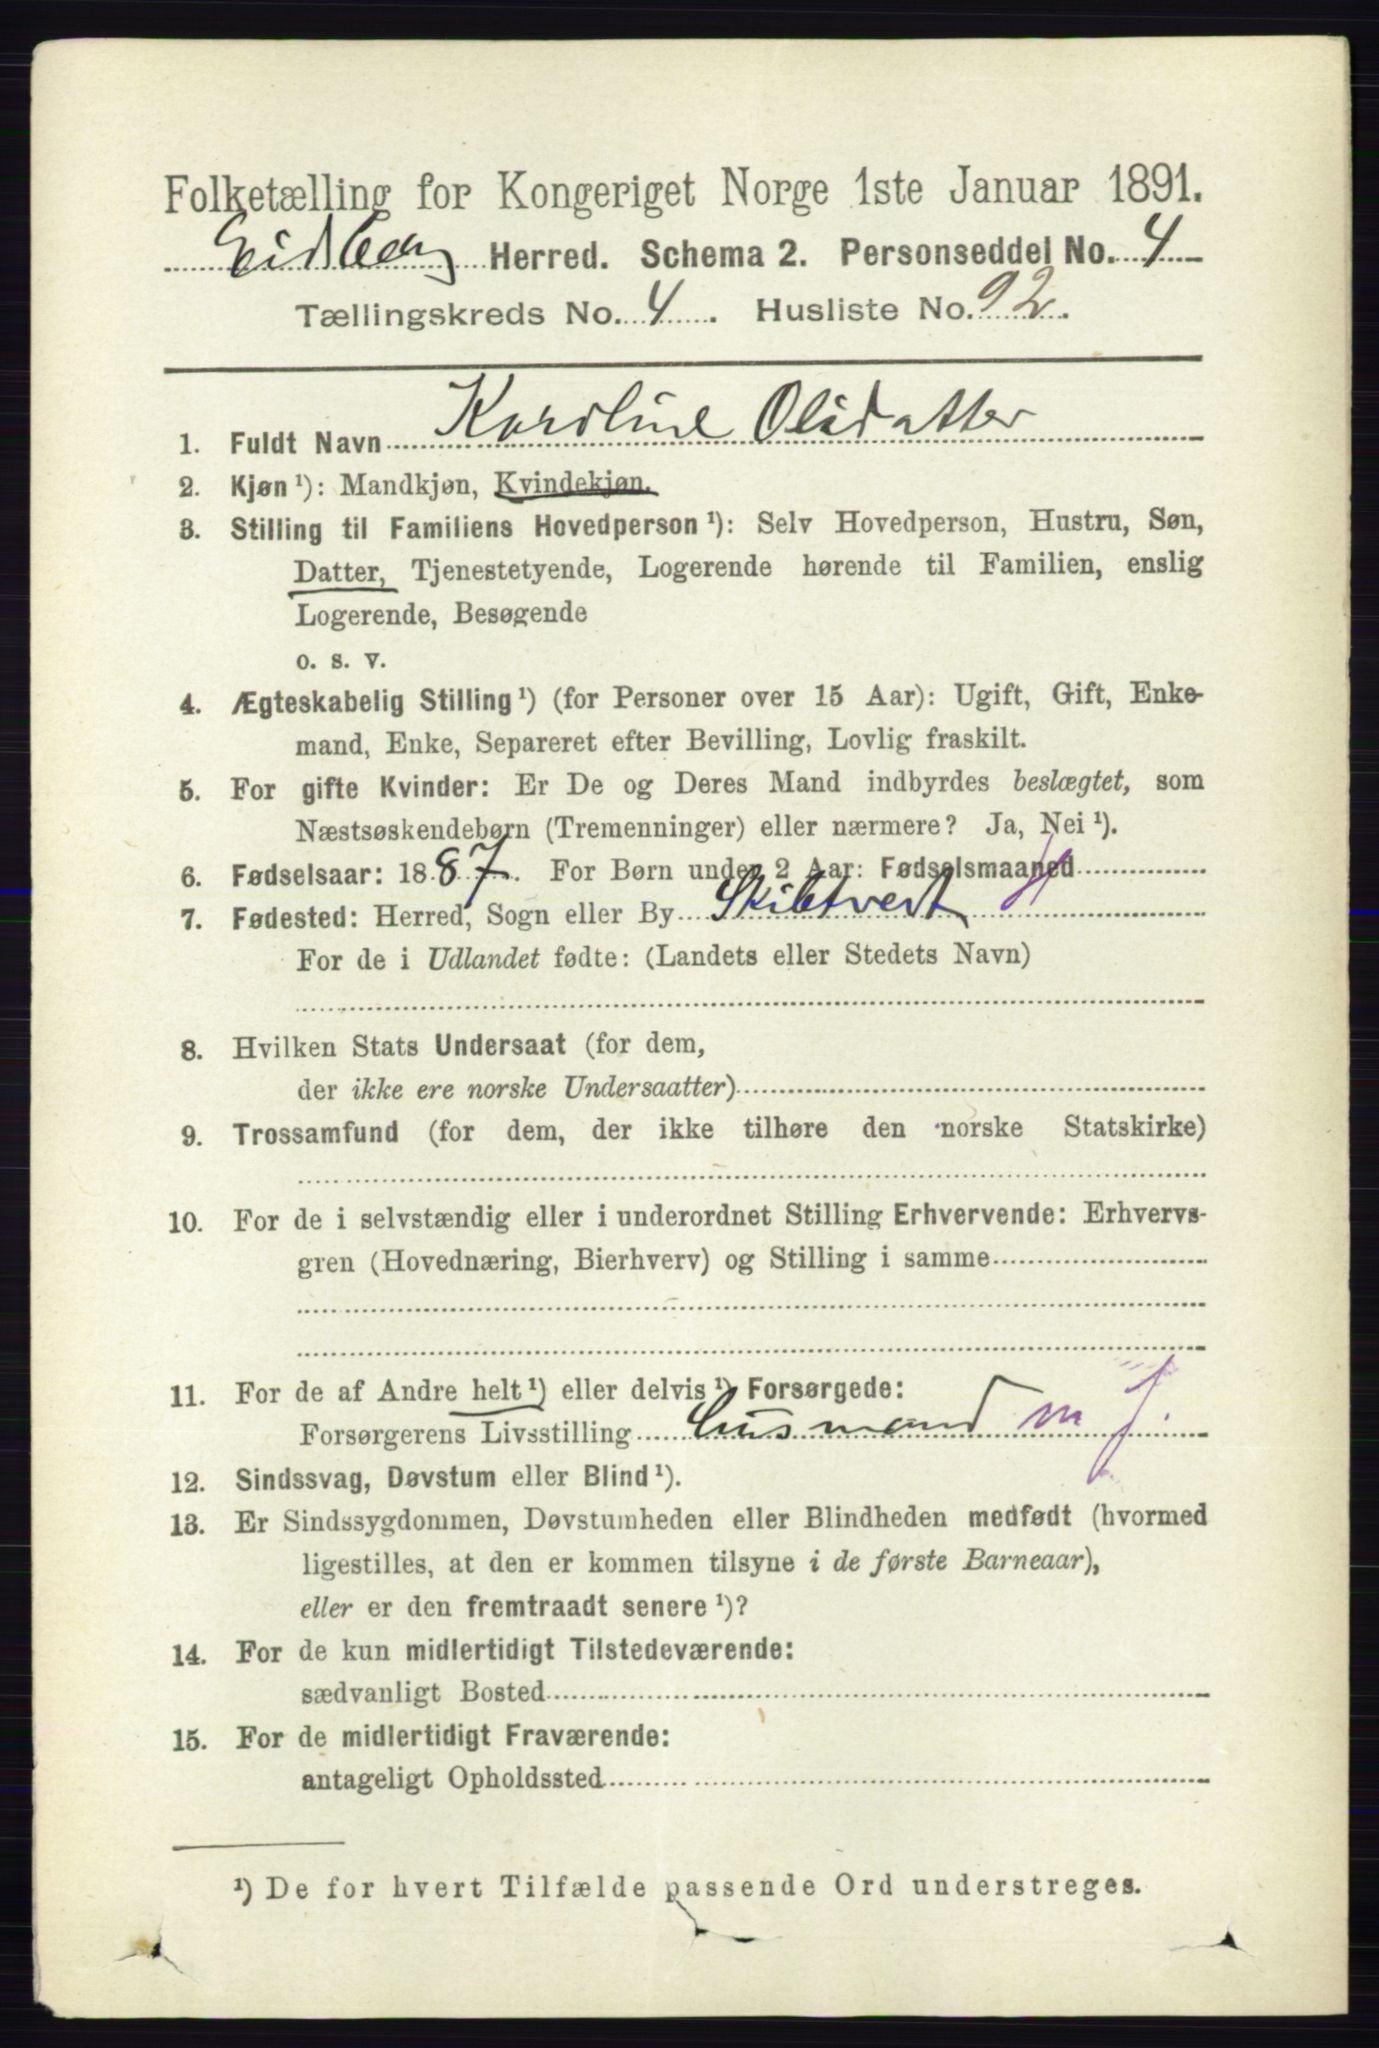 Folketælling for Kongeriget Norge 1ste Januar 1891.
Eidsberg Herred. Schema 2. Personseddel No. 4
Tællingskreds No. 4. Husliste No. 92.
1. Fuldt Navn Karoline Olsdatter
2. Kjøn ¹): Mandkjøn, Kvindekjøn.
3. Stilling til Familiens Hovedperson ¹): Selv Hovedperson, Hustru, Søn,
Datter, Tjenestetyende, Logerende hørende til Familien, enslig
Logerende, Besøgende
o. s. v.
4. Ægteskabelig Stilling ¹) (for Personer over 15 Aar): Ugift, Gift, Enke-
mand, Enke, Separeret efter Bevilling, Lovlig fraskilt.
5. For gifte Kvinder: Er De og Deres Mand indbyrdes beslægtet, som
Næstsøskendebørn (Tremenninger) eller nærmere? Ja, Nei ¹).
6. Fødselsaar: 1887. For Børn under 2 Aar: Fødselsmaaned
7. Fødested: Herred, Sogn eller By Skibtvert
For de i Udlandet fødte: (Landets eller Stedets Navn)
8. Hvilken Stats Undersaat (for dem,
der ikke ere norske Undersaatter)
9. Trossamfund (for dem, der ikke tilhøre den norske Statskirke)
10. For de i selvstændig eller i underordnet Stilling Erhvervende: Erhvervs-
gren (Hovednæring, Bierhverv) og Stilling i samme
11. For de af Andre helt ¹) eller delvis ¹) Forsørgede:
Forsørgerens Livsstilling Husmand m J.
12. Sindssvag, Døvstum eller Blind ¹).
13. Er Sindssygdommen, Døvstumheden eller Blindheden medfødt (hvormed
ligestilles, at den er kommen tilsyne i de første Barneaar),
eller er den fremtraadt senere ¹)?
14. For de kun midlertidigt Tilstedeværende:
sædvanligt Bosted
15. For de midlertidigt Fraværende:
antageligt Opholdssted
¹) De for hvert Tilfælde passende Ord understreges.